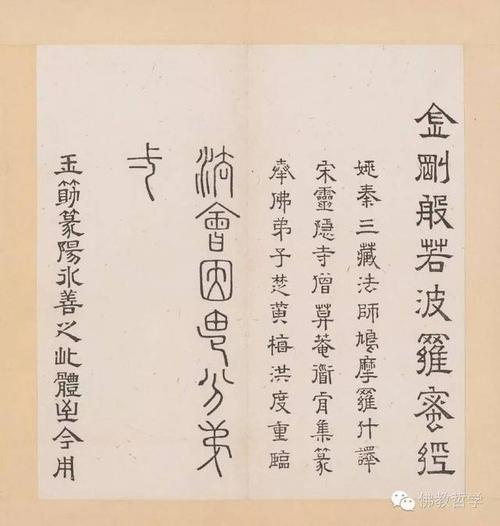 金剛般若波羅蜜經
姚秦三藏法師鳩摩羅什譯
宋靈隱寺僧莫菴道肎集篆
奉佛弟子楚黄梅洪度重臨
法會因由分弟
弌
玉筯篆陽氷善之此體至今用
佛教哲学